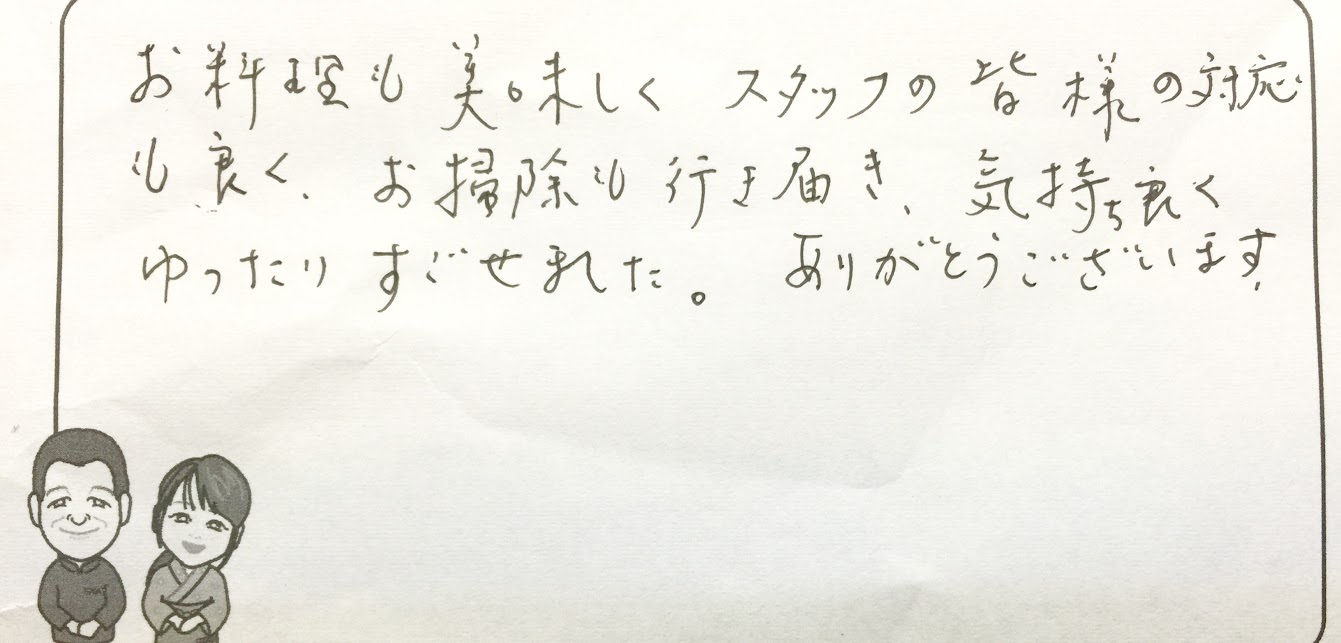 お料理も美味しく スタッフの皆様の対応
も良く、お掃除も行き届き、気持ち良く
ゆったりすごせました。 ありがとうございます